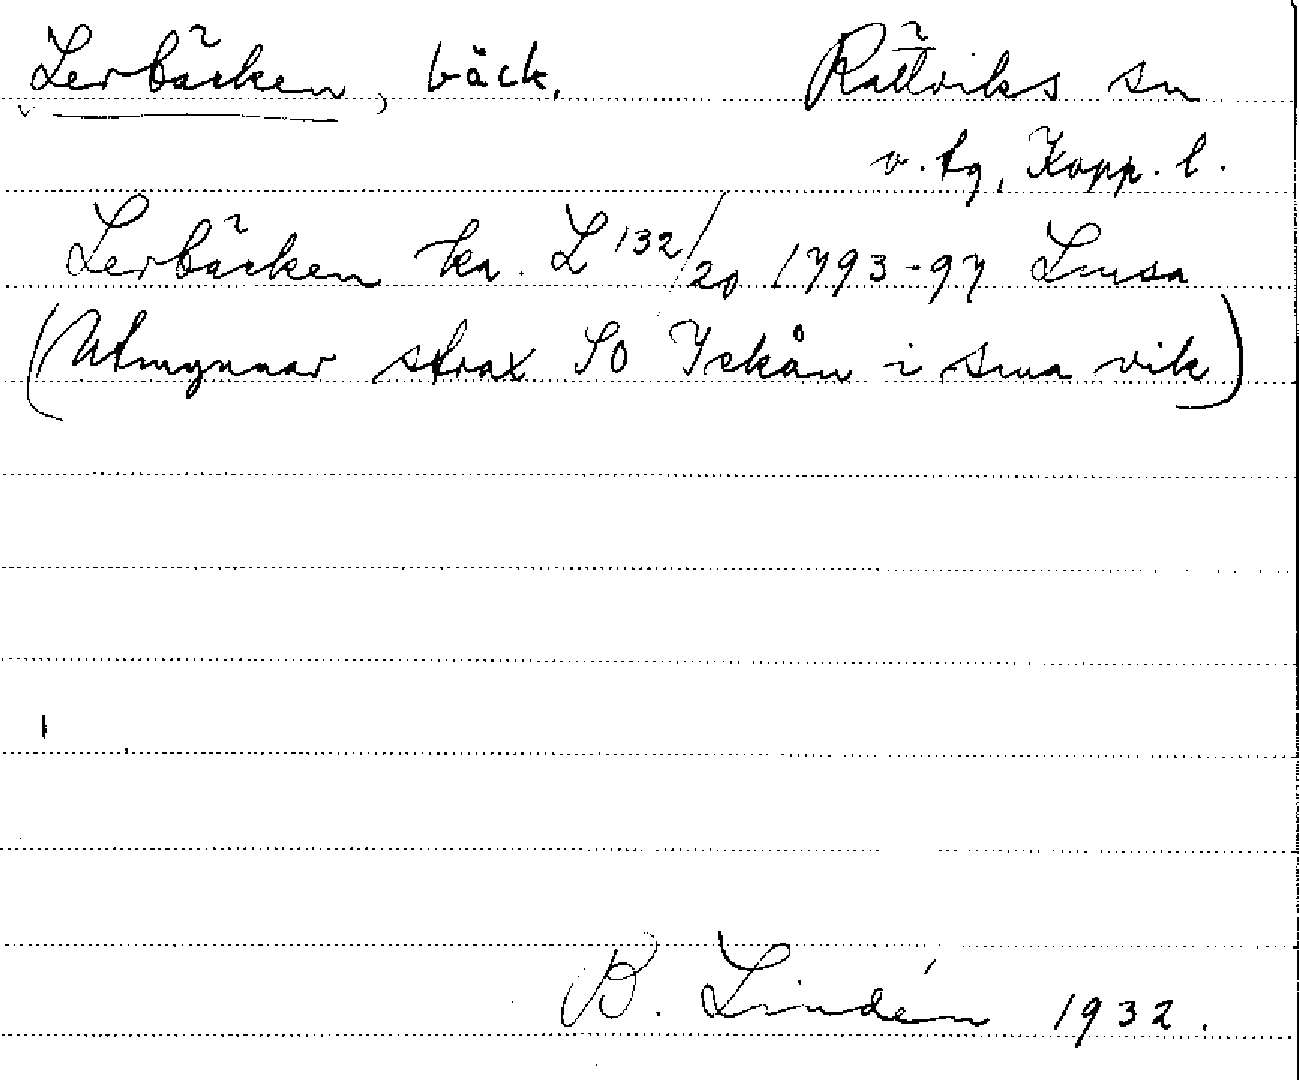 Lerbäcken, bäck. Rättviks sn
v. tg, Kopp. l.
Lerbäcken ka. L 132/20 1793-97 Lmsa
(Utmynnar strax SO Ickån i sma vik)
B. Lindén 1932.